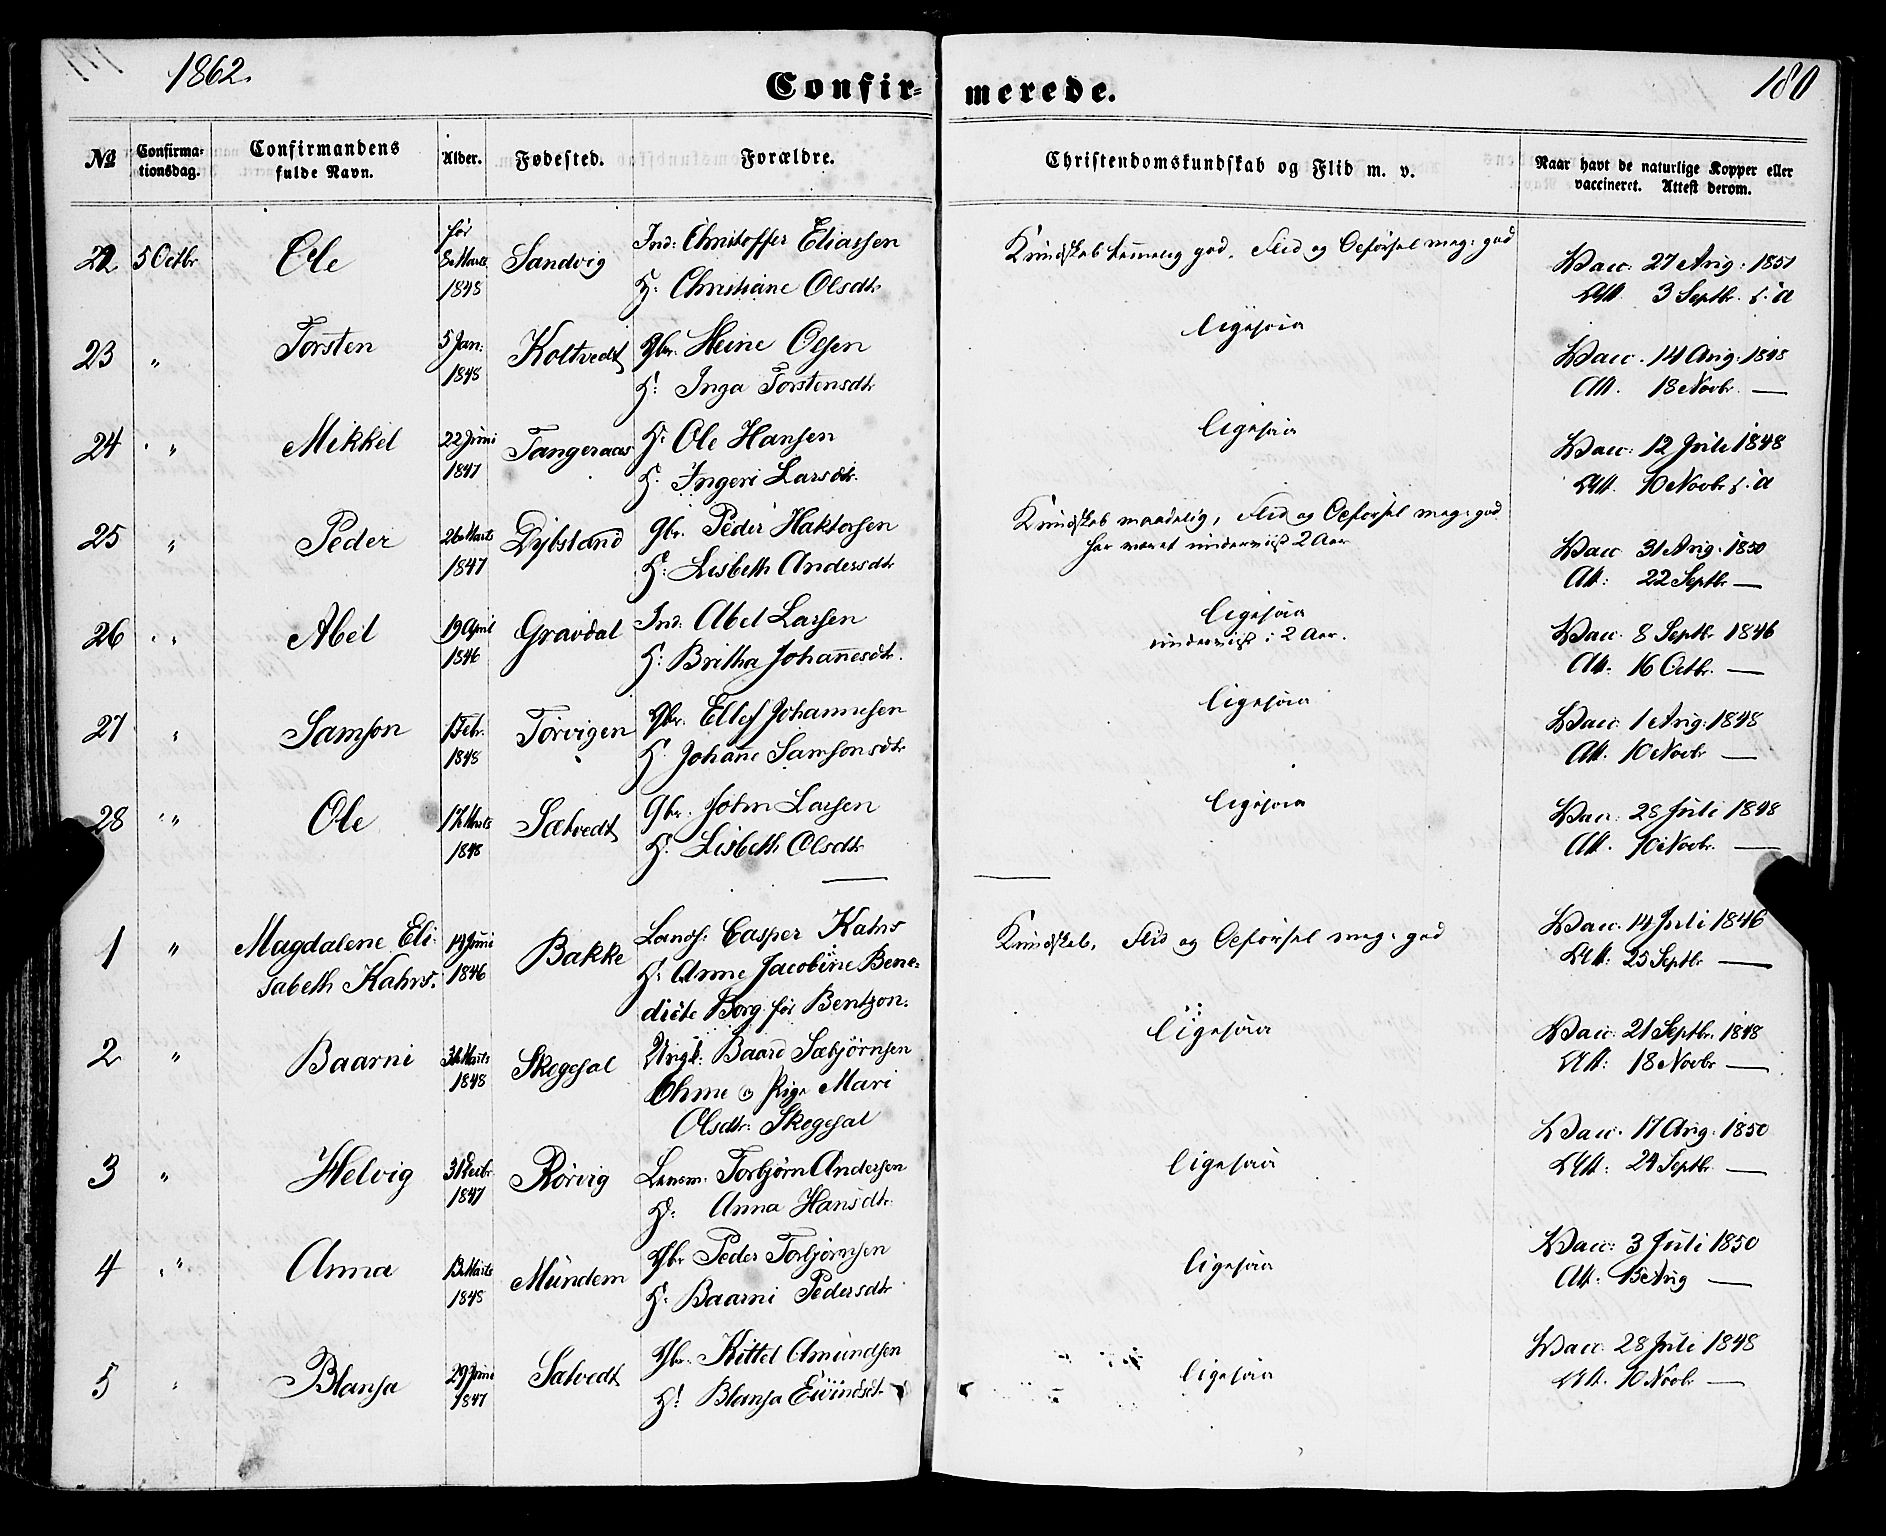 1862.
Confir-
merede.
180
№
Confirma-
tionsdag.
Confirmandens
fulde Navn.
Alder.
Fødested.
Forældre.
Christendomskundskab og Flid m. v.
Naar havt de naturlige Kopper eller
vaccineret. Attest derom.
22 5 Octbr Ole før 8 Marts 1848 Sandvig
Ind: Christoffer Eliassen
H: Christiane Olsdtr
Kundskab temmelig god. Flid og Opførsel meg: god
Vacc: 27 Aug: 1851
Att. 3 Septb. s: a
23 " Torsten 5 Jan: 1848 Koltvedt
Gbr. Heine Olsen
H: Inga Torstensdtr
ligesaa
Vacc. 14 Aug: 1848
Att. 18 Novbr. —
24 " Mikkel 22 Juni 1847 Tangeraas
H: Ole Hansen
H: Ingeri Larsdtr.
ligesaa
Vacc: 12 Juli 1848
Att. 10 Novbr s: a
25 " Peder 26 Marts 1847 Dybsland
Gbr. Peder Haktorsen
H: Lisbeth Andersdtr
Kundskab maadelig, Flid og Opførsel meg: god
har været underviist 2 Aar
Vacc 31 Aug: 1850
Att: 22 Septbr —
26 " Abel 19 April 1846 Gravdal
Ind: Abel Larsen
H: Britha Johannesdtr.
ligesaa
underviist i 2 Aar.
Vacc. 8 Septbr 1846
Att. 16 Octbr. —
27 " Samson 1 Febr. 1848 Torvigen
Gbr. Ellef Johannesen
H. Johanne Samsonsdtr
ligesaa
Vacc. 1 Aug: 1848
Att. 10 Novbr —
28 " Ole 17 Marts 1848 Sætvedt
Gbr. John Larsen
H: Lisbeth Olsdtr
ligesaa
Vacc: 28 Juli 1848
Att. 10 Novbr. —
1 " Magdalene Eli-
sabeth Kahrs. 14 Juni 1846 Bakke
Landh: Casper Kahrs
H: Anne Jacobine Bene-
dicte Borg før Bentzon.
Kundskab, Flid og Opførsel meg: god
Vacc. 14 Juli 1846
Att: 25 Septbr —
2 " Baarni 31 Marts 1848 Skogesal
Ungk: Baard Sæbjørnsen
Ohme og Pige Mari
Olsdtr: Skogesal
ligesaa
Vacc: 21 Septbr. 1848
Att: 18 Novbr —
3 " Helvig 31 Decbr. 1847 Rørvig
Lensm. Torbjørn Andersen
H: Anna Hansdtr
ligesaa
Vacc. 17 Aug: 1850
Att: 24 Septbr —
4 " Anna 13 Marts 1848 Mundem
Gbr Peder Torbjørnsen
H: Baarni Pedersdtr
ligesaa
Vacc: 3 Juli 1850
Att: 15 Aug —
5 " Blansa 29 Juni 1847 Sætvedt
Gbr. Kittel Amundsen
H: Blansa Eivindsdtr
ligesaa
Vacc: 28 Juli 1848
Att. 10 Novbr —